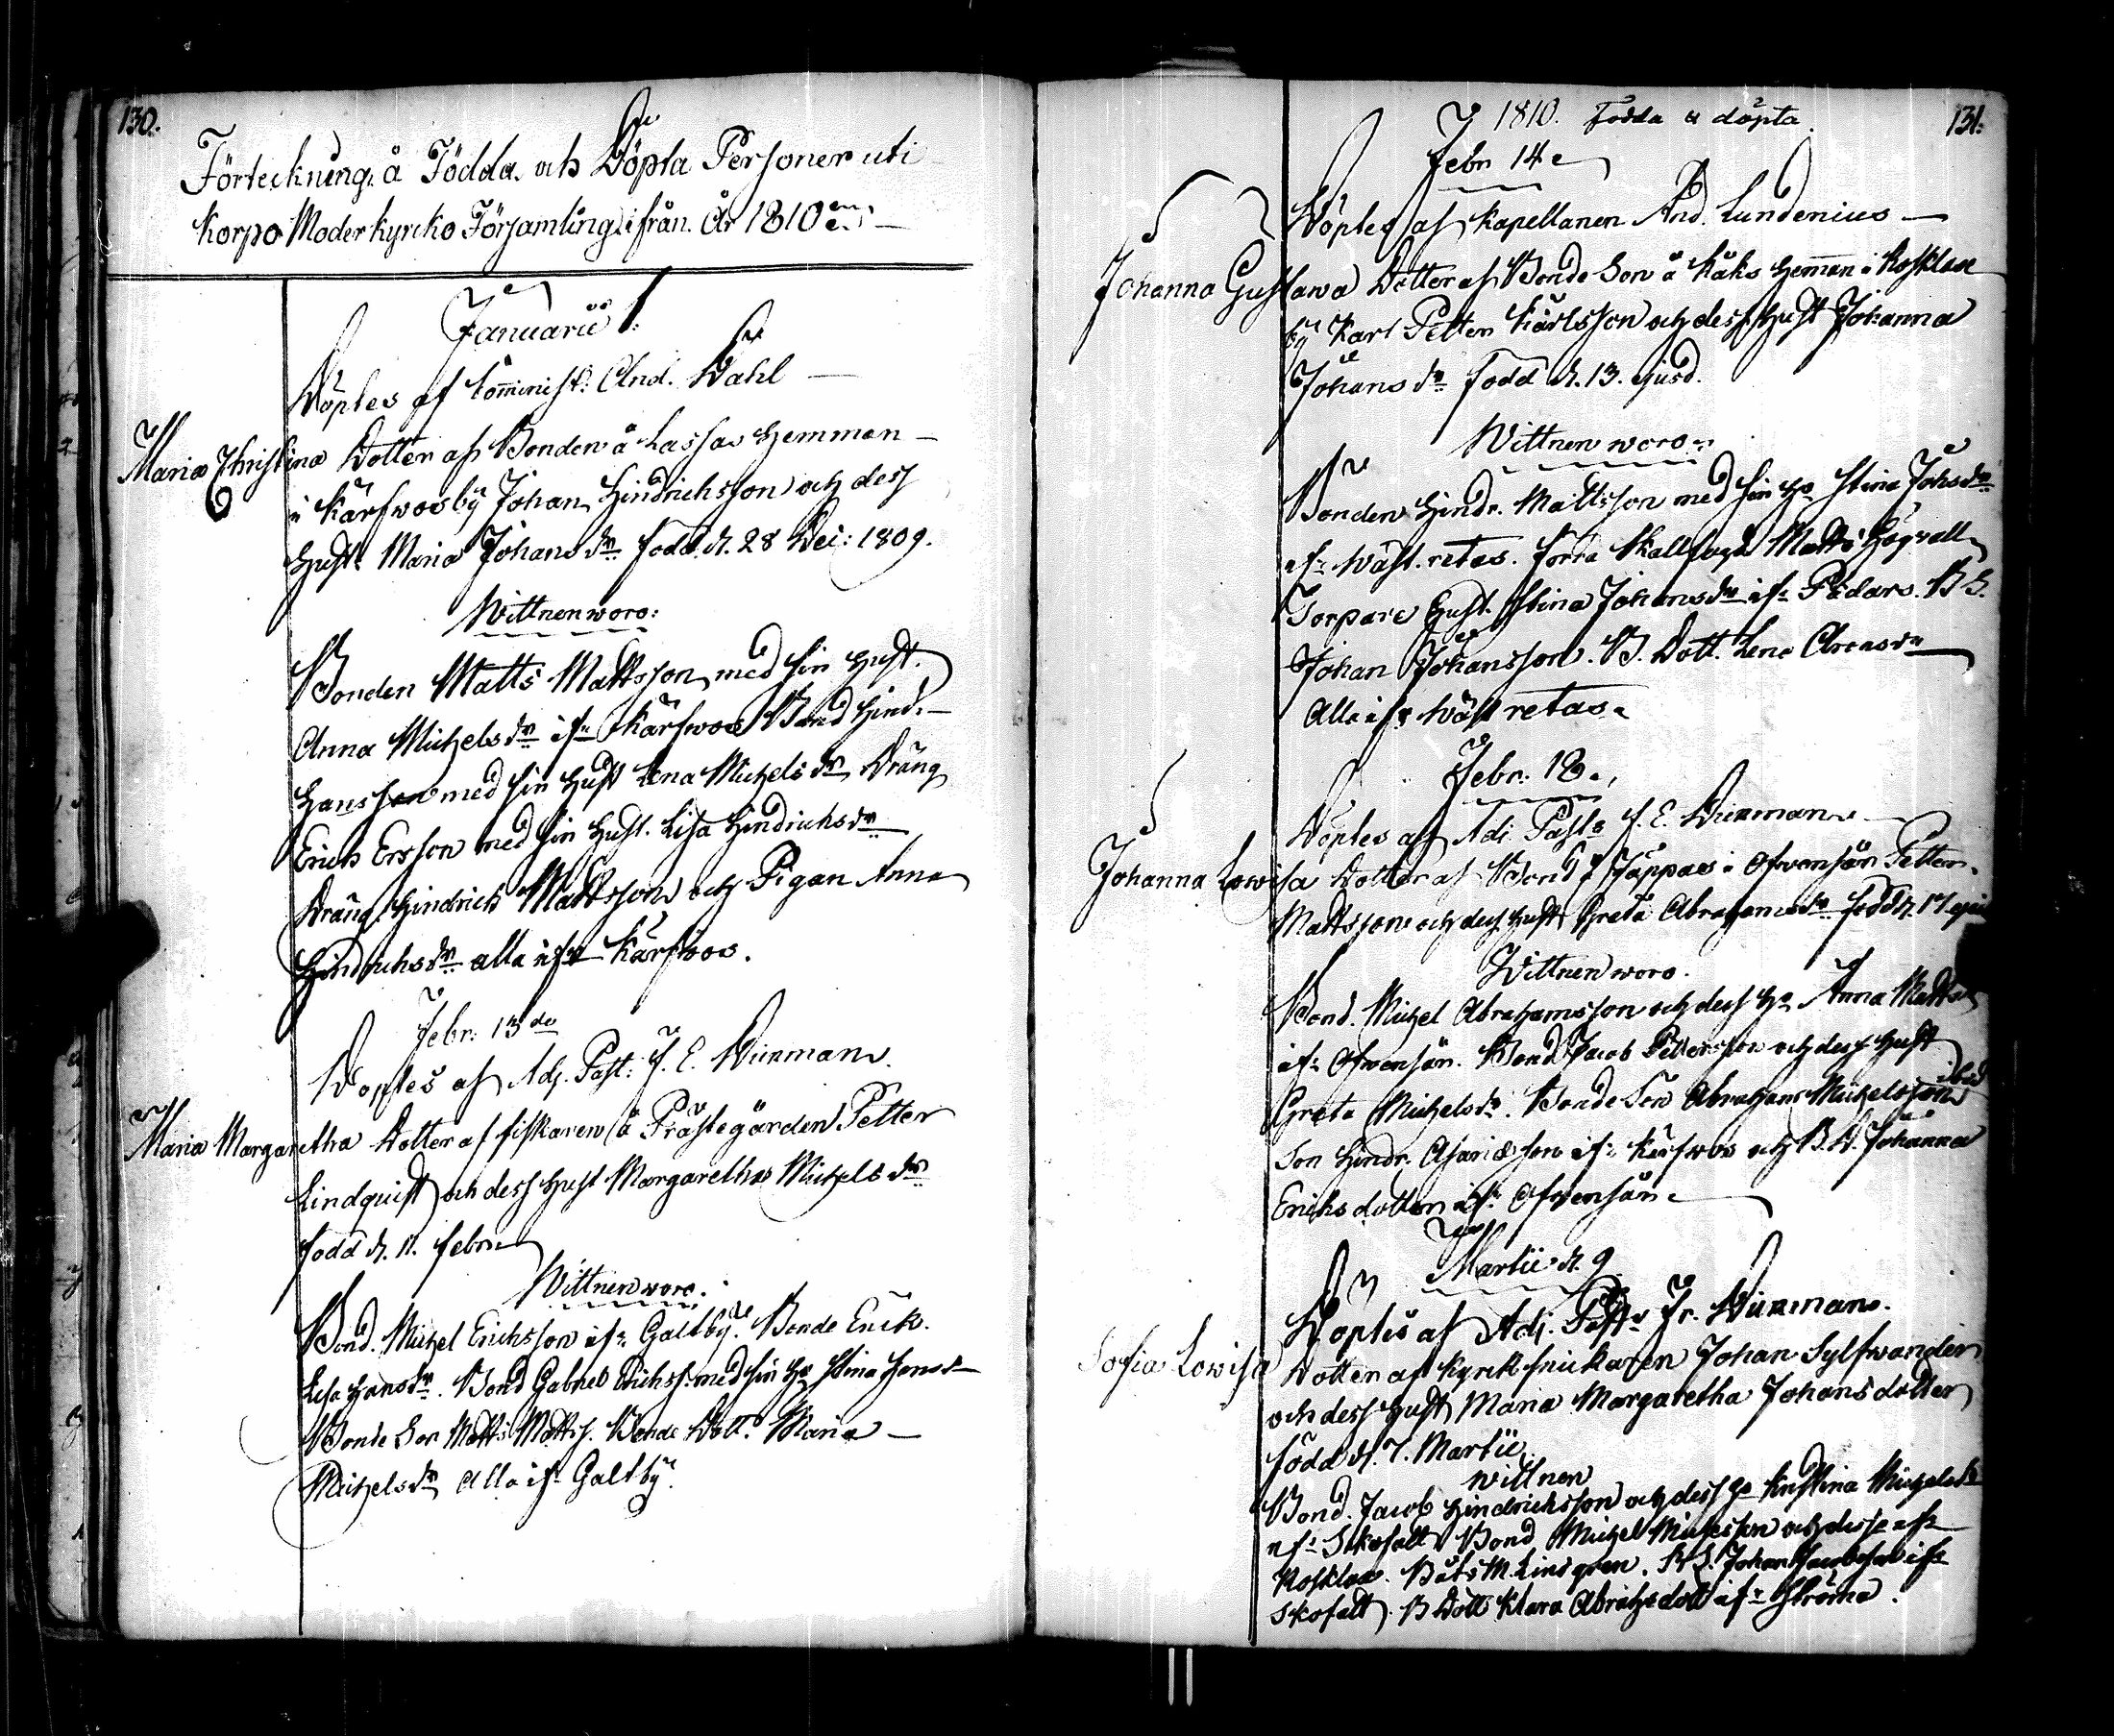 130.
Förteckning å Födda och Döpta Personer uti
Korpo Moderkyrcko Församling ifrån År 1810
Januarii 1.
Döptes af Comminist: And. Dahl
Maria Christina Dotter af Bonden å Lassas Hemman
i Kärfwosby Johan Hindrichsson och dess
Hust. Maria Johans dr född d. 28 Dec: 1809.
Wittnen woro:
Bonden Matts Mattsson med sin Hust.
Anna Michels dr ifr Kärfwos Bond Hind.
Hansson med sin Hust Lena Michels dr Dräng
Erich Ersson med sin Hust. Lisa Hindrichs dr
Dräng Hindrich Mattsson och Pigan Anna
Hindrichs dr alla ifr Kärfwos.
Febr: 13 de
Döptes af Adj. Past: F. E. Widman.
Maria Margaretha Dotter af fiskaren å Prästegården Petter
Lindquist och dess Hust Margaretha Michels dr
född d. 11. febr.
Wittnen woro.
Bond. Michel Erichsson ifr Galtby. Bonde Erick.
Lisa Hans dr. Bond Gabriel Erichss. med sin Ho Stina Hans dr
Bonde Son Matts Mattss. Bonde Dott. Maria
Michels dr Alla ifr Galtby.
131.
1810. Födda & döpta.
Febr 14
Döptes af Kapellanen And. Lundenius
Johanna Gustawa Dotter af Bonde Son å Käks Hemman i Rosklax
by Karl Petter Karlsson och dess Hust Johanna
Johans dr född d. 13. ejusd.
Wittnen woro:
Bonden Hindr. Mattsson med sin Ho Stina Johs dr
ifr Wäst. retas. Matts Högvall
Torpare Hust. Stina Johans dr ifr Pedars. B S.
Johan Johansson. B. Dott. Lena
Alla ifr Wäst retas.
Febr: 18.
Döptes af Adj. Past: F. E. Widman.
Johanna Lowisa Dotter af Bond å Jäppas i Ofwensår Petter
Mattsson och dess Hust Greta Abrahams dr född d. 17
Wittnen woro.
Bond. Michel Abrahamsson och dess Ho Anna Matts
ifr Ofwensår. Bond Jacob Pettersson och dess Hust
ibid
Greta Michels dr. Bonde Son Abraham Michelsson
Son Hindr. Asariæson ifr Kärfwos och B. D. Johanna
Erichsdotter ifr Ofwensår.
Martii d. 9
Döptes af Adj. Past: Fr. Widman.
Sofia Lowisa Dotter af Kyrck snickaren Johan Sylfwander
och dess Hust Maria Margaretha Johans dotter
född d. 7. Martii.
Wittnen
Bond. Jacob Hindrichsson och dess Ho Kristina Michels dr
ifr Skofalt Bond Michel Michelsson och dess ifr
Rosklax. Båts M. Lindgren. B S. Johan Jacobsson ifr
Skofalt. B Dott Klara Abrahs dott ifr Ströma.